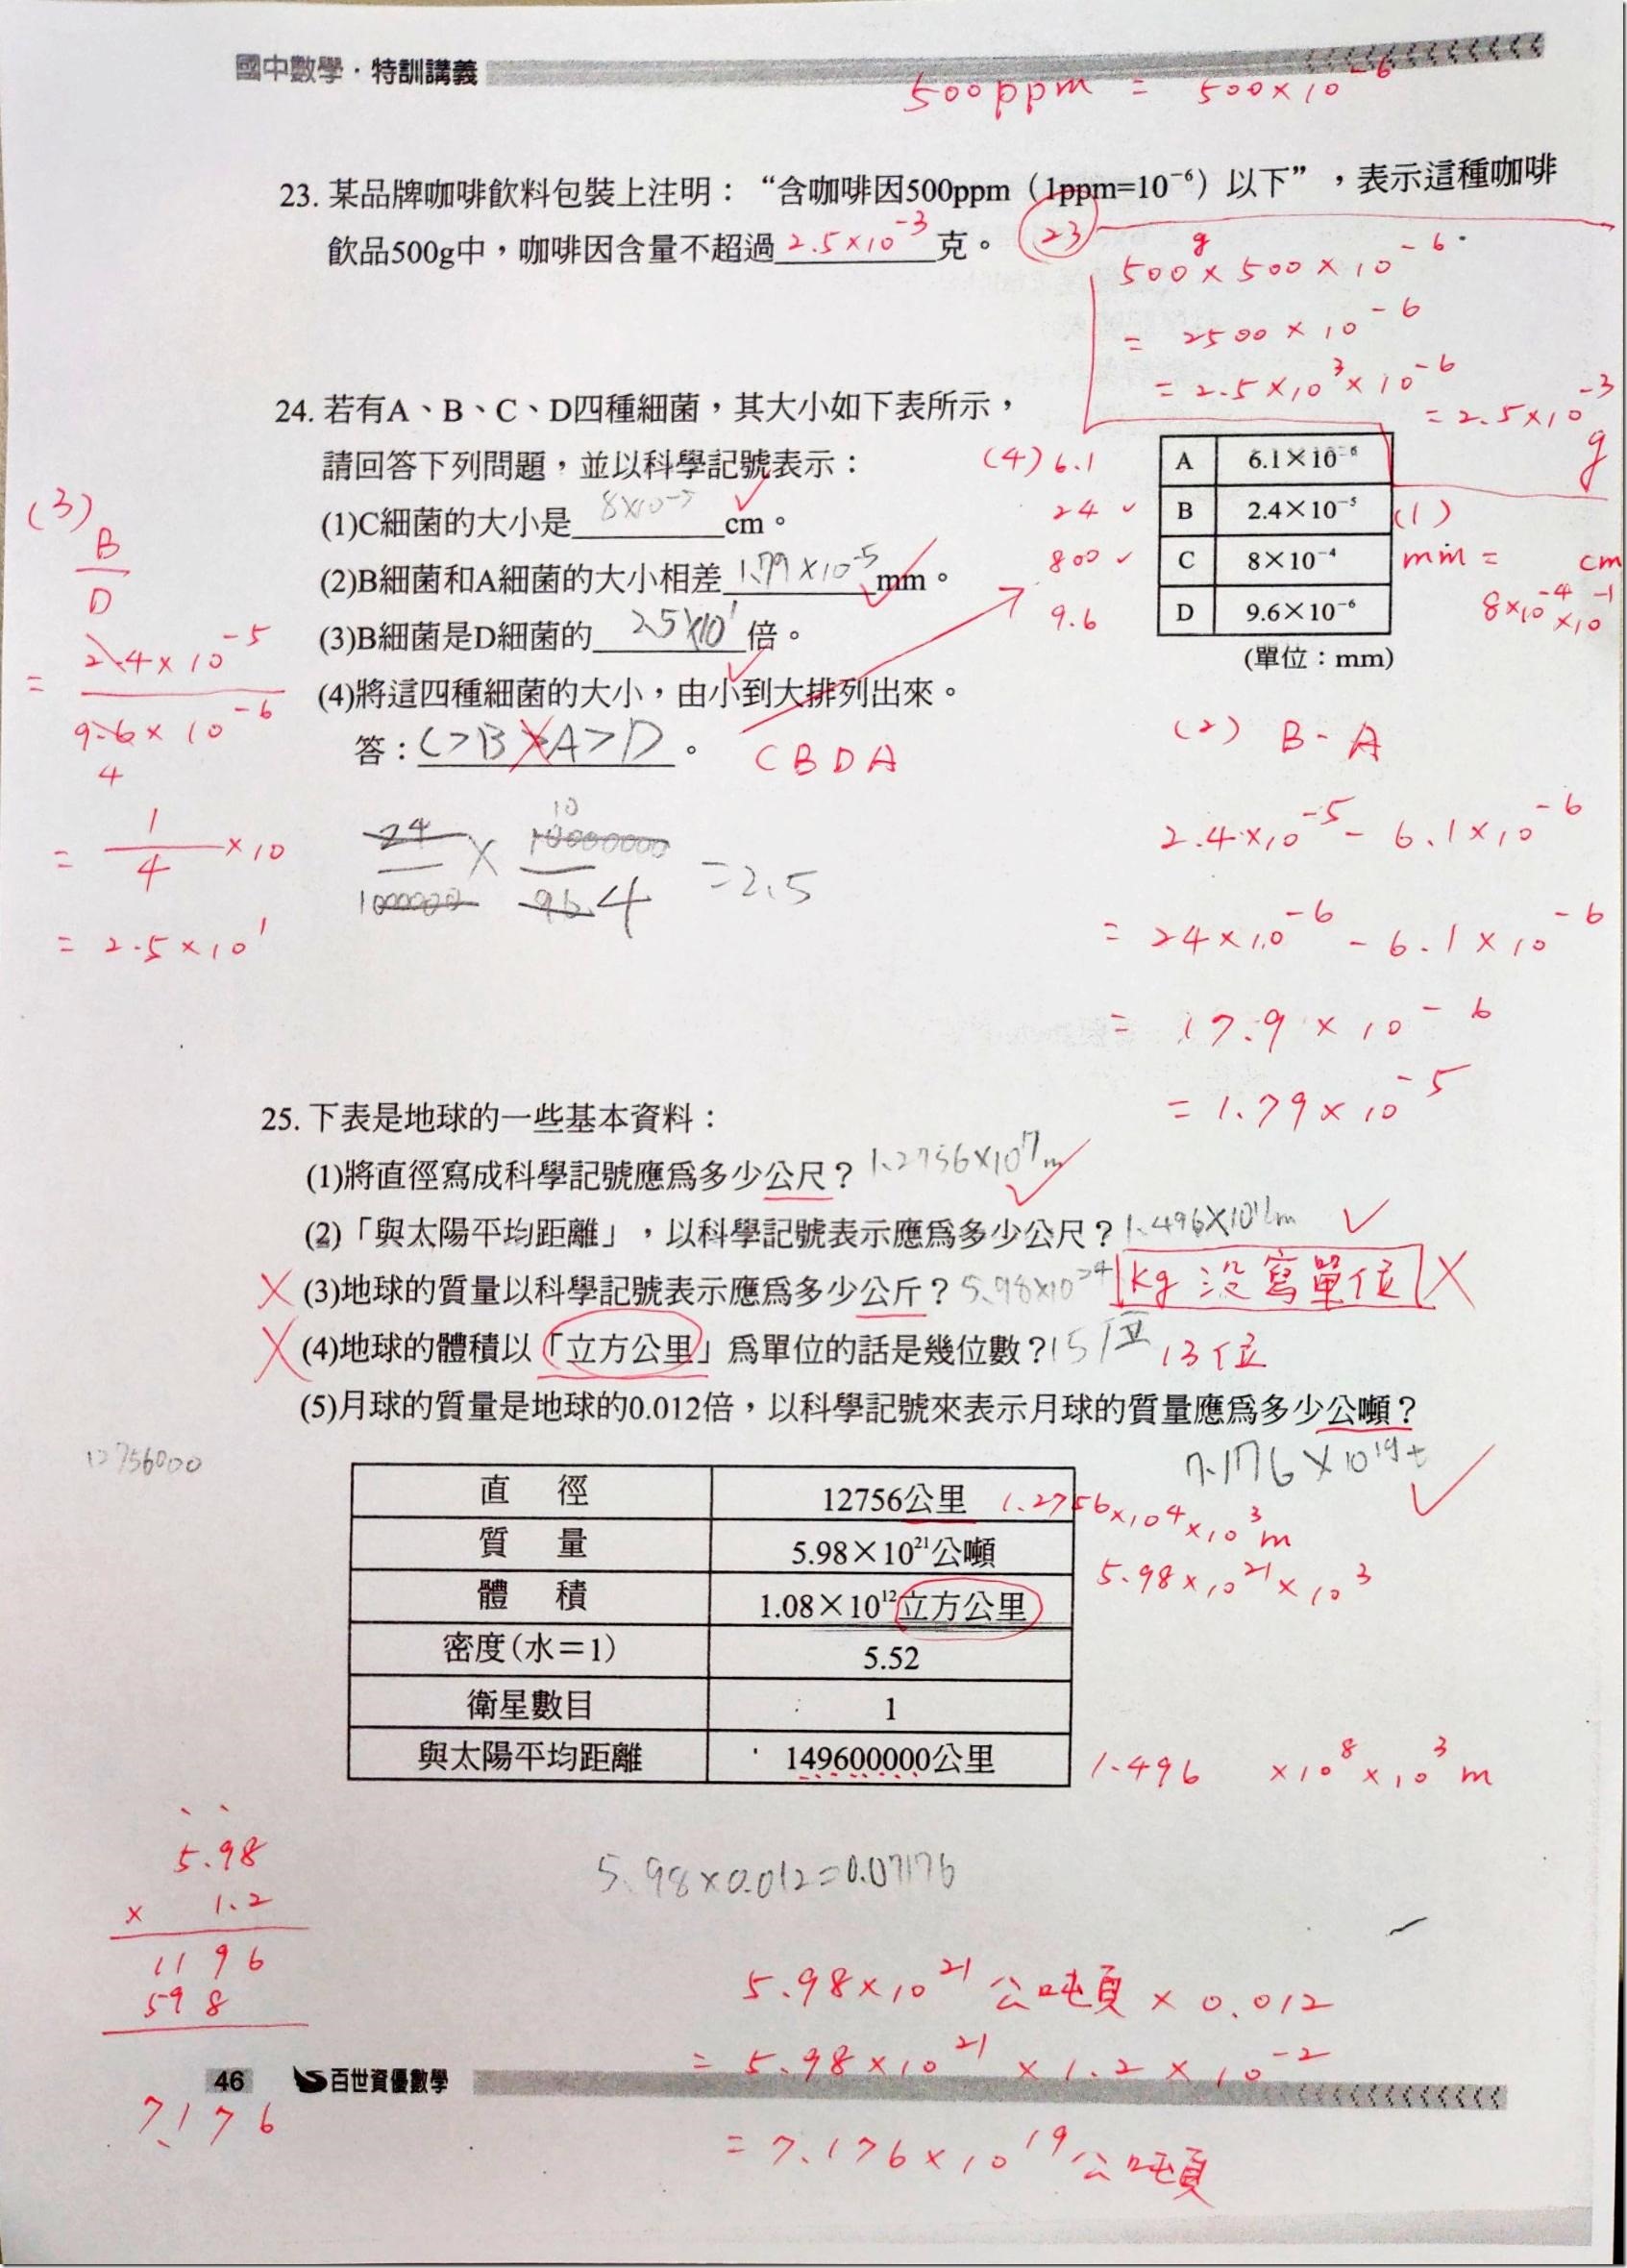 國中數學·特訓講義
500ppm = 500×10⁻⁶
23. 某品牌咖啡飲料包裝上注明：“含咖啡因500ppm（1ppm=10⁻⁶）以下”，表示這種咖啡
飲品500g中，咖啡因含量不超過2.5×10⁻³克。
(23)
500g×500×10⁻⁶
= 2500×10⁻⁶
= 2.5×10³×10⁻⁶
= 2.5×10⁻³
g
24. 若有A、B、C、D四種細菌，其大小如下表所示，
請回答下列問題，並以科學記號表示：
(1)C細菌的大小是8×10⁻⁵cm。
(2)B細菌和A細菌的大小相差1.79×10⁻⁵mm。
(3)B細菌是D細菌的2.5×10¹倍。
(4)將這四種細菌的大小，由小到大排列出來。
答：C>B>A>D。
CBDA
(4) 6.1
24
800
9.6
A 6.1×10⁻⁶
B 2.4×10⁻⁵
C 8×10⁻⁴
D 9.6×10⁻⁶
(單位：mm)
(1)
mm = cm
8×10⁻⁴×10⁻¹
(3)
B
D
= 2.4×10⁻⁵
9.6×10⁻⁶
4
= 1
4 ×10
= 2.5×10¹
24 × 10000000 = 2.5
10
1000000 96 4
(2) B-A
2.4×10⁻⁵-6.1×10⁻⁶
= 24×10⁻⁶-6.1×10⁻⁶
= 17.9×10⁻⁶
= 1.79×10⁻⁵
25. 下表是地球的一些基本資料：
(1)將直徑寫成科學記號應為多少公尺？1.2756×10⁷m
(2)「與太陽平均距離」，以科學記號表示應為多少公尺？1.496×10¹¹m
(3)地球的質量以科學記號表示應為多少公斤？5.98×10²⁴ kg 沒寫單位
(4)地球的體積以「立方公里」為單位的話是幾位數？15位 13位
(5)月球的質量是地球的0.012倍，以科學記號來表示月球的質量應為多少公噸？
7.176×10¹⁹t
12756000
直 徑 12756公里
1.2756×10⁴×10³m
質 量 5.98×10²¹公噸
5.98×10²¹×10³
體 積 1.08×10¹²立方公里
密度(水＝1) 5.52
衛星數目 1
與太陽平均距離 149600000公里
1.496 ×10⁸×10³m
5.98
× 1.2
1196
598
7.176
5.98×0.012=0.07176
5.98×10²¹公噸×0.012
= 5.98×10²¹×1.2×10⁻²
= 7.176×10¹⁹公噸
46 百世資優數學